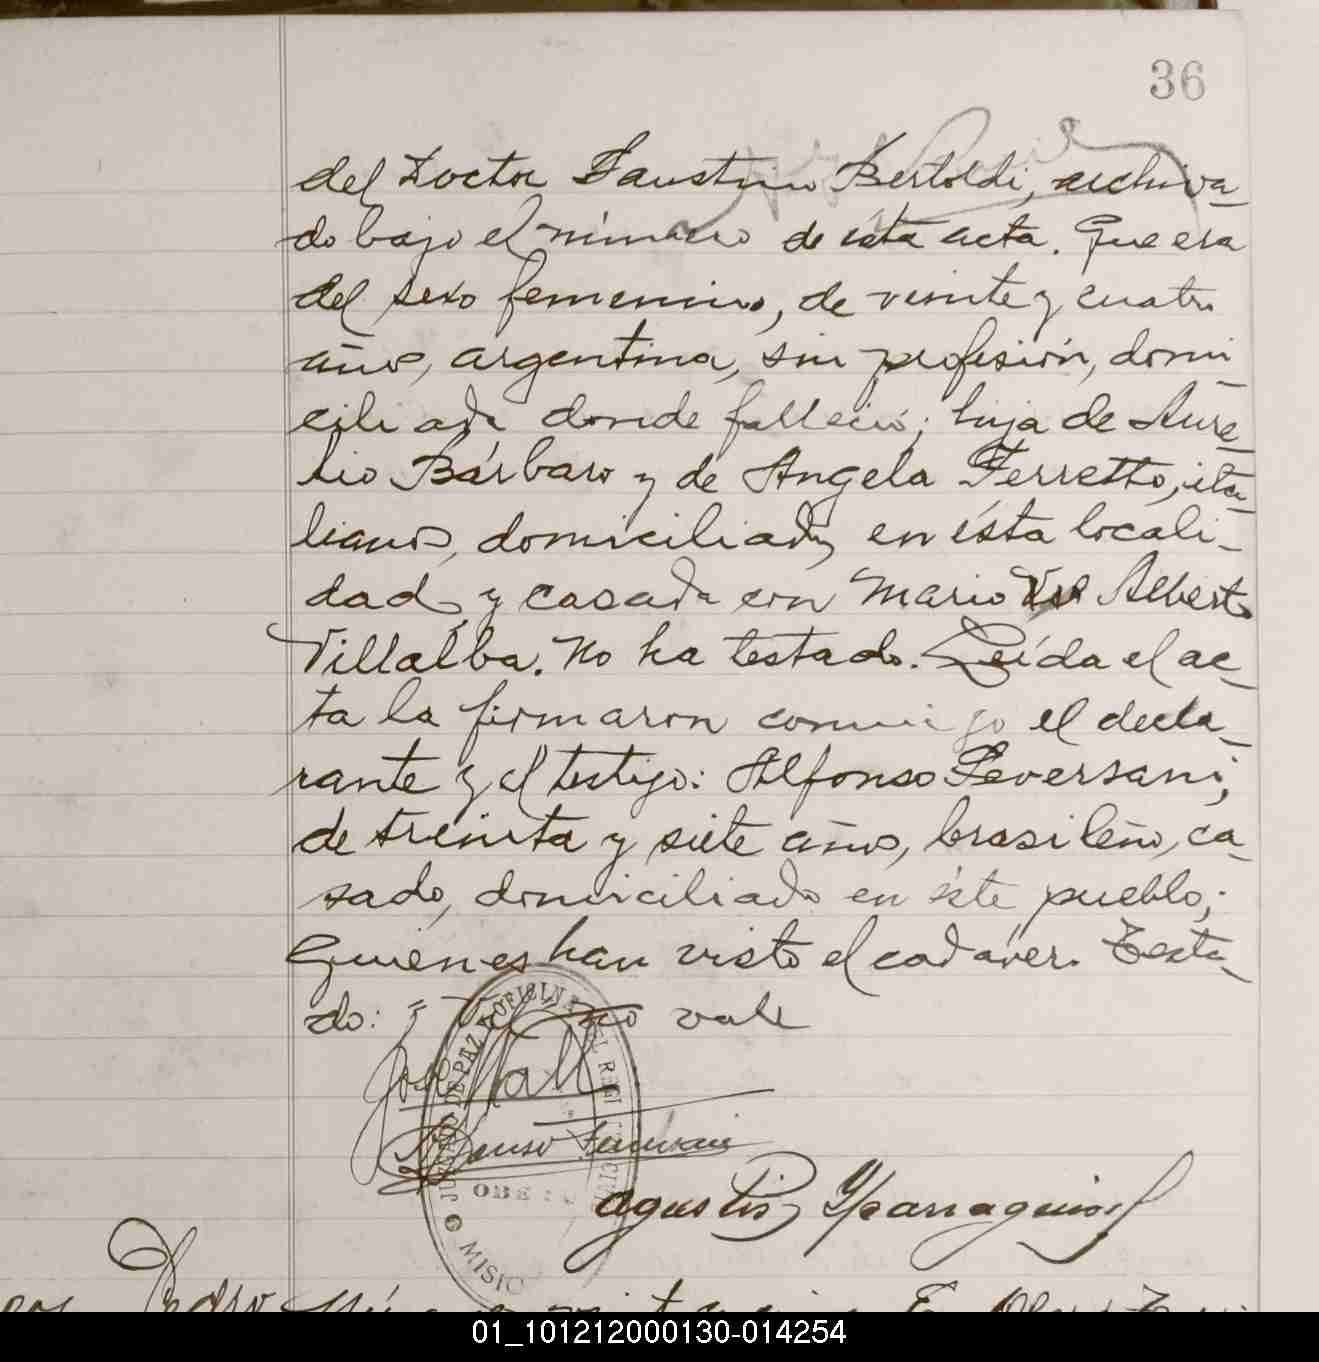 36
del Doctor Faustino Bertoldi, archiva_
do bajo el número de ésta acta. Que era
del sexo femenino, de veinte y cuatro
años, argentina, sin profesión, domi_
ciliada donde falleció; hija de Aure_
lio Bárbaro y de Angela Ferretto, ita_
lianos, domiciliados en ésta locali_
dad, y casada con Mario Vil Alberto
Villalba. No ha testado. Leída el ac_
ta la firmaron conmigo el decla_
rante y el testigo: Alfonso Feversani,
de treinta y siete años, brasileño, ca_
sado, domiciliado en éste pueblo;
quienes han visto el cadáver. Testa_
do: "Vil" no vale
José
JUZGADO DE PAZ Y OFICINA DEL REGI CIVIL
OBE
MISIO
Agustin Yparraguirre
Pedro
01_101212000130-014254